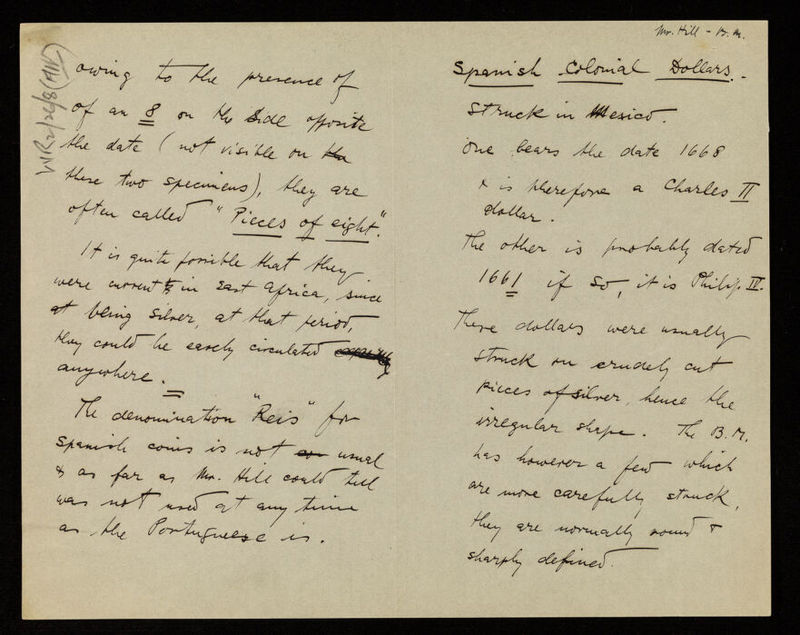 Mr. Hill - B.M.
Spanish Colonial Dollars.-
struck in Mexico.
One bears the date 1668
& is therefore a Charles II
dollar.
The other is probably dated
1661 if so, it is Philip IV.
These dollars were usually
struck on crudely cut
pieces of silver, hence the
irregular shape. The B.M.
has however a few which
are more carefully struck,
they are normally round &
sharply defined.
owing to the presence of
of an 8 on the side opposite
the date (not visible on the
these two specimens), they are
often called "Pieces of eight".
It is quite possible that they
were current in East Africa, since
at being silver, at that period,
they could be easely circulated
anywhere.
The denomination "Reis" for
Spanish coins is not usual
& as far as Mr. Hill could tell
was not used at any time
as the Portugueese is.